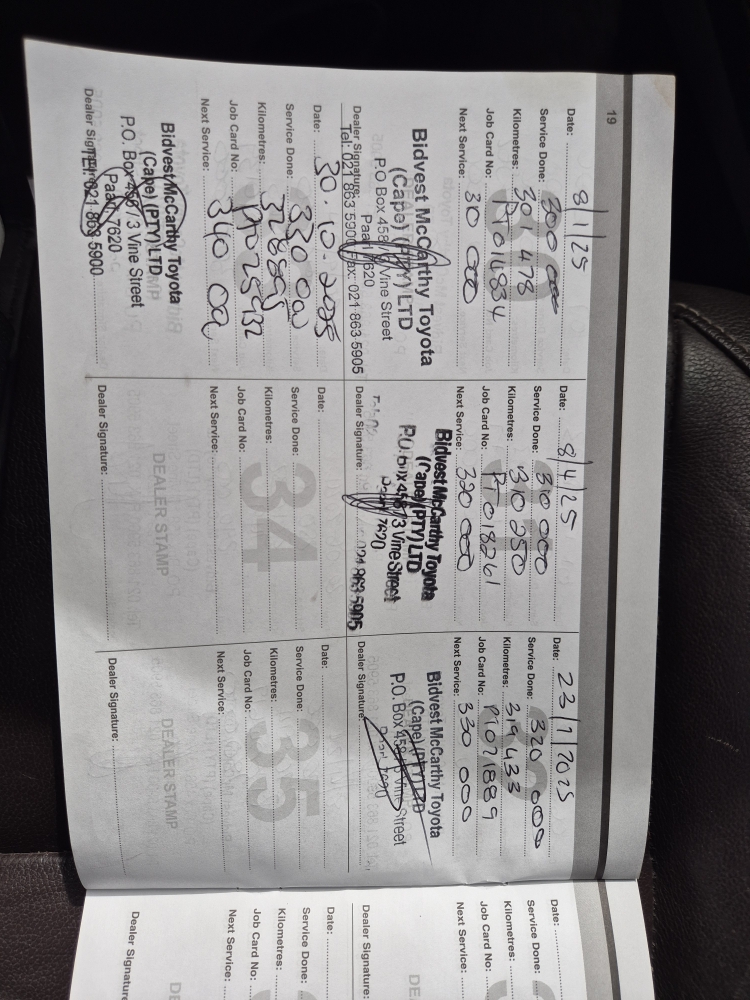 19
Date: 8/1/25
Service Done: 300 000
Kilometres: 301 478
Job Card No: PT014834
Next Service: 310 000
Bidvest McCarthy Toyota
(Cape) (PTY) LTD
P.O Box 458 / 3 Vine Street
Paarl 7620
Dealer Signature:
Tel: 021 863 5900 Fax: 021 863 5905
Date: 8/4/25
Service Done: 310 000
Kilometres: 310 250
Job Card No: PT018261
Next Service: 320 000
Bidvest McCarthy Toyota
(Cape) (PTY) LTD
P.O. Box 458 / 3 Vine Street
Paarl 7620
Dealer Signature:
021 863 5905
Date: 23/7/2025
Service Done: 320 000
Kilometres: 319 433
Job Card No:
Next Service: 330 000
Bidvest McCarthy Toyota
(Cape) (PTY) LTD
P.O. Box 458 / 3 Vine Street
Paarl 7620
Dealer Signature:
Date: 30.10.2025
Service Done: 330 00
Kilometres:
Job Card No:
Next Service: 340 00
Bidvest McCarthy Toyota
(Cape) (PTY) LTD
P.O. Box 458 / 3 Vine Street
Paarl 7620
Dealer Signature:
Tel: 021 863 5900
34
Date:
Service Done:
Kilometres:
Job Card No:
Next Service:
DEALER STAMP
Dealer Signature:
35
Date:
Service Done:
Kilometres:
Job Card No:
Next Service:
DEALER STAMP
Dealer Signature:
Date:
Service Done:
Kilometres:
Job Card No:
Next Service:
Dealer Signature:
Date:
Service Done:
Kilometres:
Job Card No:
Next Service:
Dealer Signature: